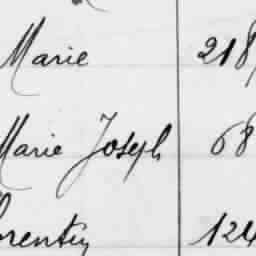 Marie 218
Marie Joseph 68
orentin 124